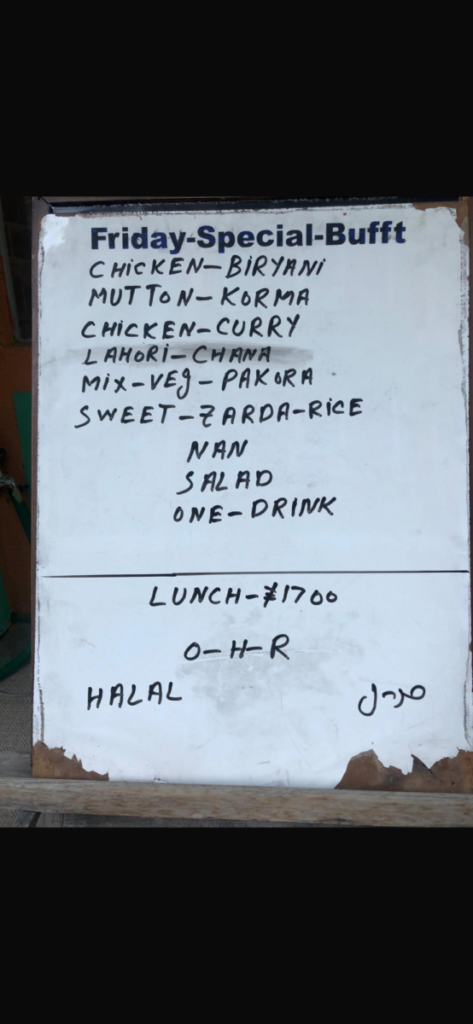 Friday-Special-Bufft
CHICKEN-BIRYANI
MUTTON-KORMA
CHICKEN-CURRY
LAHORI-CHANA
MIX-VEG-PAKORA
SWEET-ZARDA-RICE
NAN
SALAD
ONE-DRINK
LUNCH-¥1700
O-H-R
HALAL